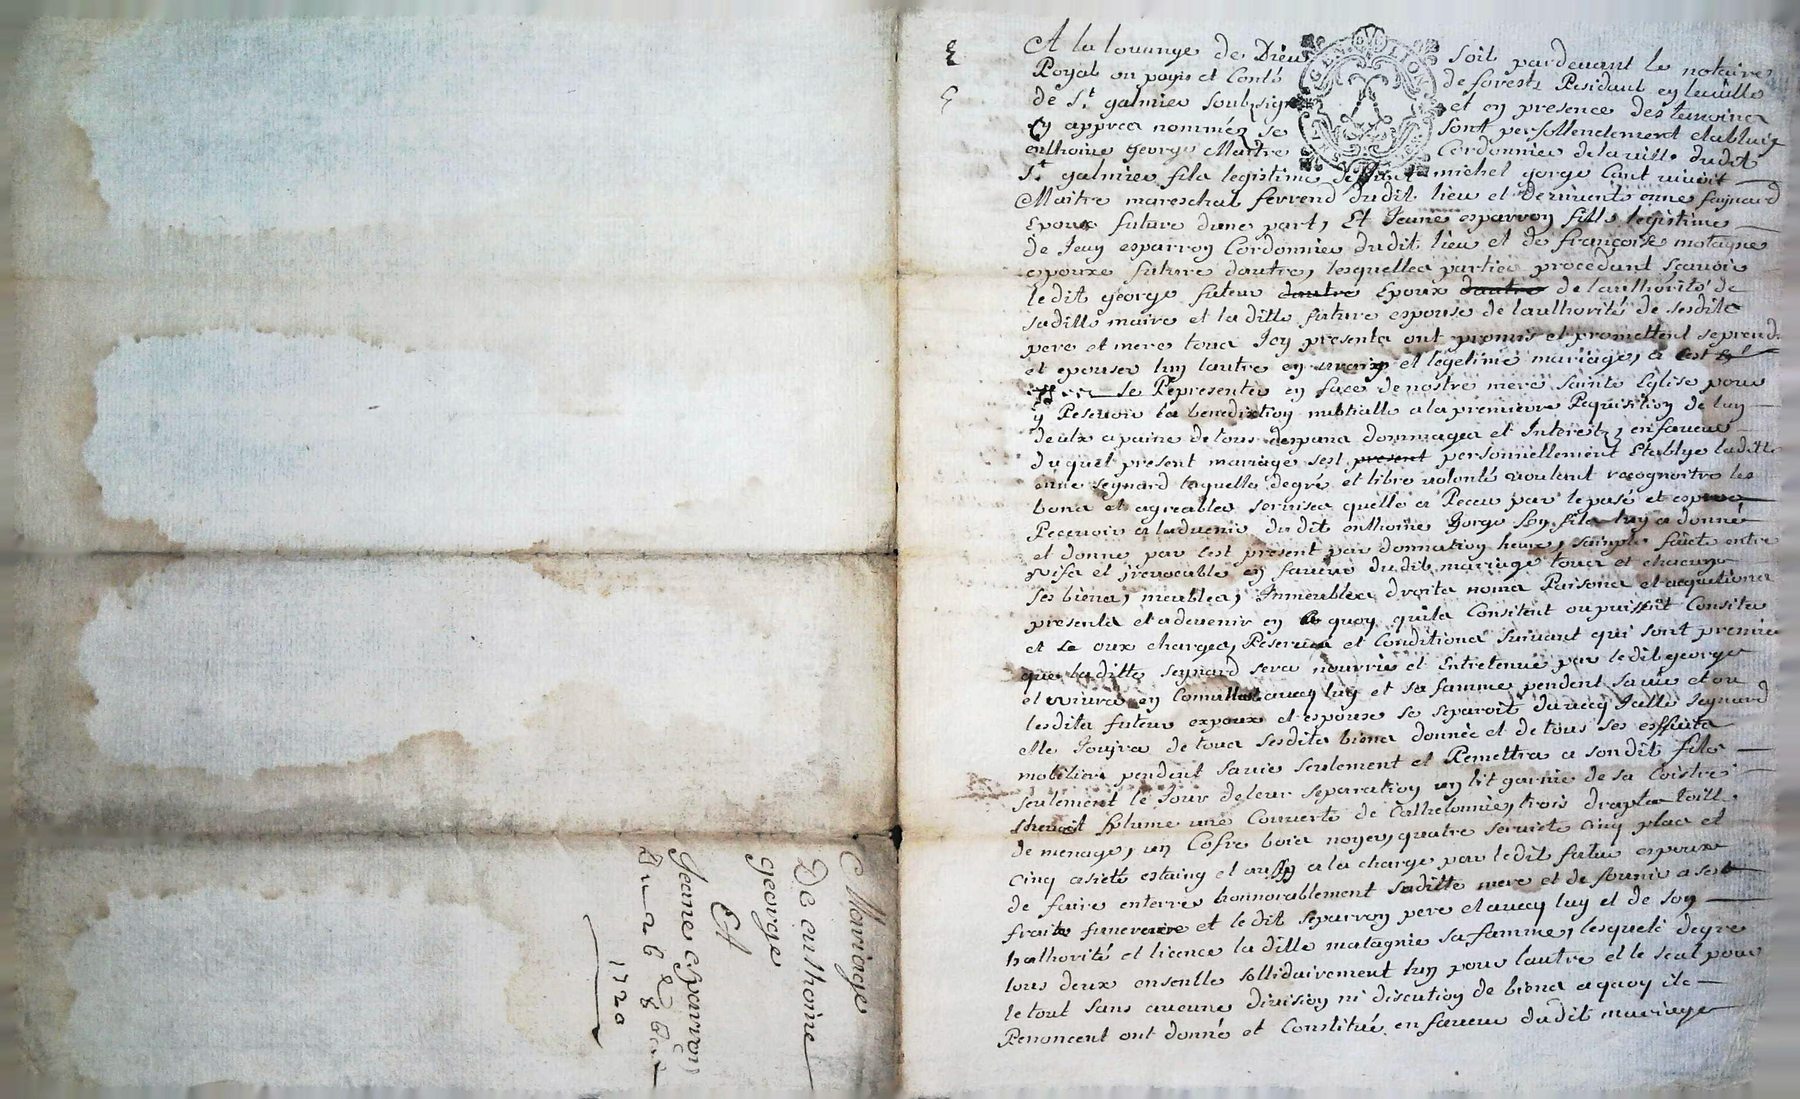 Mariage
De anthoine
george
Et
Jeanne esparron
Du 26
1720
A la louange de Dieu soit pardevant le notaire
Royal en pays et Conté de forests Residant en la ville
de St galmier soubsigné et en presence des temoins
Cy apprea nommés se sont personnellement establuis
enthoine george Maitre Cordonnier de la ville dudit
St galmier fils legistime michel gorge Cant vivoit
Maitre mareschal ferrend dudit lieu et enne seignard
Epoux future dune part, Et Jeane esparron fille legistime
de Jean esparron Cordonnier dudit lieu et de francoise matagne
epouxe future dautre, lesquelles parties procedant scavoir
le dit george futeur dautre Epoux dautre de lauthorité de
sa ditte maire et la ditte future espouse de lauthorité de sesdits
pere et mere tous Icy presents ont promis et promettent se prendre
et epouser lun lautre en vraix et legetime mariage, a cest
se Representer en face de nostre mere sainte Eglise pour
y Resevoir la benediction nubtialle a la premiere Requisition de lun
deulx a paine de tous despans dommages et Interestz, en faveur
duquel present mariage sest present personnellement Etablye laditte
enne seynard laquelle degré et libre volonté voulant recognoitre les
bons et agreables services quelle a Receu par le pasé et espere
Recevoir a ladvenir du dit enthoine Gorge son fils luy a donné
et donne par cest present par donnation heure, simple faicte entre
vifs et irevocable en faveur dudit mariage tous et chacuns
ses biens, meubles, Immeubles droits noms Raisons et acquitions
presents et advenir en quoy quils Consitent ou puissent Consiter
et se aux charges, Reserves et Conditions suivant qui sont premier
que laditte seynard sera nourrie et Entretenue par ledit george
et vivra en avecq luy et sa famme pendent sa vie et ou
lesdits futeur expoux et espouse se separoit davecq Icelle Seynard
elle Jouira de tous sesdits biens donnée et de tous ses
mobiliers pendent sa vie seulement et Remettra a son dit fils
seulement le Jour de leur separation un lit garnie de sa Coistre
plume une Couverte de Cathelonnie, trois draps toille
de menage, un Cofre bois noyer, quatre serviets cinq plas et
cinq asiets estaing et aussy a la charge par ledit futur espoux
de faire enterrer honnorablement saditte mere et de fournir a ses
frais funeraire et le dit Separron pere et avecq luy et de son
hathorité et licence la ditte matagnie sa famme, lesquels degre
tous deux ensemble sollidairement lun pour lautre et le seul pour
le tout sans aucune division ni discution de biens a quoy ils
Renoncent ont donné et Constitué en faveur dudit mariage